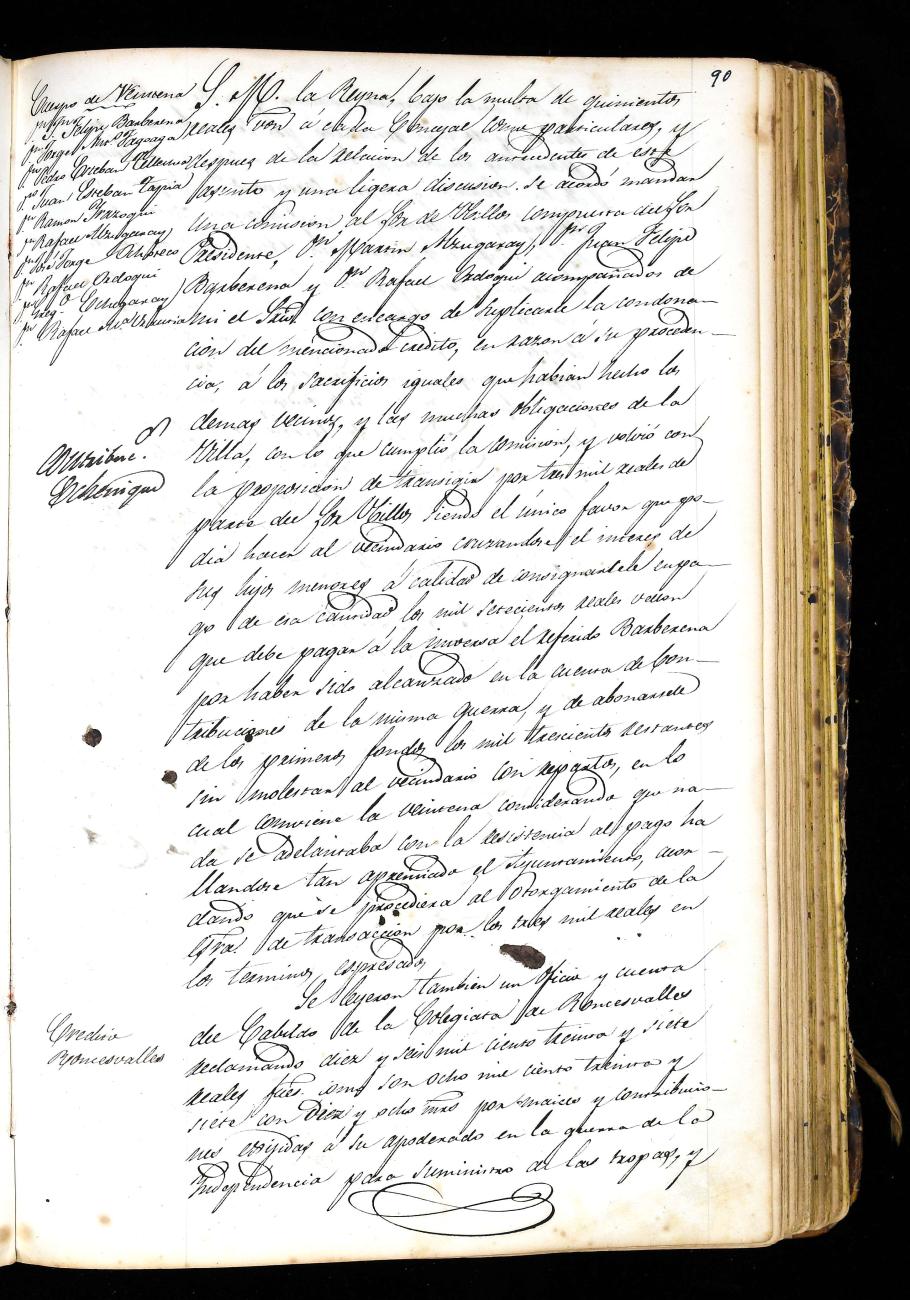 90
Cuerpo de Veintena
Dn. Jn. Felipe Barberena
Dn. Jorge Anto. Tagoaga
Dn. Pedro Esteban
Dn. Juan Esteban Tapia
Dn. Ramon Irazoqui
Dn. Rafael Alzugaray
Dn. José Jorge
Dn. Rafael Ordoqui
Dn. Greg.o Echegaray
Dn. Rafael Ma.
S. M. la Reyna, bajo la multa de quinientos
reales von. á cada Concejal como particulares, y
despues de la relacion de los antecedentes de este
asunto y una ligera discusion se acordó mandar
una comision al Sor. de Ubillos compuesta del Sor.
Presidente, Dn. Martin Alzugaray, Dn. Juan Felipe
Barberena y Dn. Rafael Ordoqui acompañados de
mi el Srio. con encargo de suplicarle la condona-
cion del mencionado credito, en razon á su proceden-
cia, á los sacrificios iguales que habian hecho los
demas vecinos, y las muchas obligaciones de la
Villa, con lo que cumplió la comision, y volvió con
la proposicion de transigir por tres mil reales de
parte del Sor. Ubillos siendo el único favor que po-
dia hacer al vecindario cruzandose el interes de
sus hijos menores á calidad de consignarsele en pa-
go de esa cantidad los mil setecientos reales vellon
que debe pagar á la inversa el referido Barberena
por haber sido alcanzado en la cuenta de Con-
tribuciones de la misma guerra, y de abonarsele
de los primeros fondos los mil trescientos restantes
sin molestar al vecindario con repartos, en lo
cual conviene la veintena considerando que na-
da se adelantaba con la resistencia al pago ha
llandose tan apremiado el Ayuntamiento, acor-
dando que se procediera al otorgamiento de la
esra. de transaccion por los tres mil reales en
los terminos espresados
Contribuc.
Echenique
Se leyeron tambien un oficio y cuenta
del Cabildo de la Colegiata de Roncesvalles
reclamando diez y seis mil ciento treinta y siete
reales ftes. como son ocho mil ciento treinta y
siete con diez y ocho mrs. por maices y contribucio-
nes exijidas á su apoderado en la guerra de la
Independencia para suministro de las tropas, y
Credito
Roncesvalles